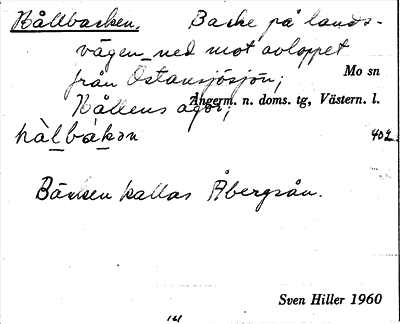 Kållbacken. Backe på lands-
vägen ned mot avloppet
från Östansjösjön;
Mo sn
Kållens ägor;
Ångerm. n. doms. tg, Västern. l.
kàlbàkən
402.
Bäcken kallas Åbergsån.
Sven Hiller 1960